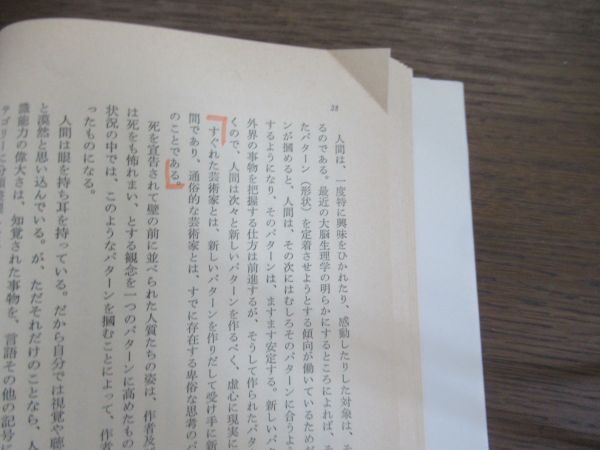 28
人間は、一度特に興味をひかれたり、感動したりした対象は、そ
るのである。最近の大脳生理学の明らかにするところによれば、そ
たパターン(形状)を定着させようとする傾向が働いているためだ
ンが掴めると、人間は、その次にはむしろそのパターンに合うよう
するようになり、そのパターンは、ますます安定する。新しいパタ
外界の事物を把握する仕方は前進するが、そうして作られたパター
くので、人間は次々と新しいパターンを作るべく、虚心に現実に
すぐれた芸術家とは、新しいパターンを作りだして受け手に新
間であり、通俗的な芸術家とは、すでに存在する卑俗な思考のパ
のことである。
死を宣告されて壁の前に並べられた人質たちの姿は、作者及
は死をも怖れまい、とする観念を一つのパターンに高めたもの
状況の中では、このようなパターンを掴むことによって、作者
ったものになる。
人間は眼を持ち耳を持っている。だから自分では視覚や聴
と漠然と思い込んでいる。が、ただそれだけのことなら、人
識能力の偉大さは、知覚された事物を、言語その他の記号に
テゴリーに分類整理